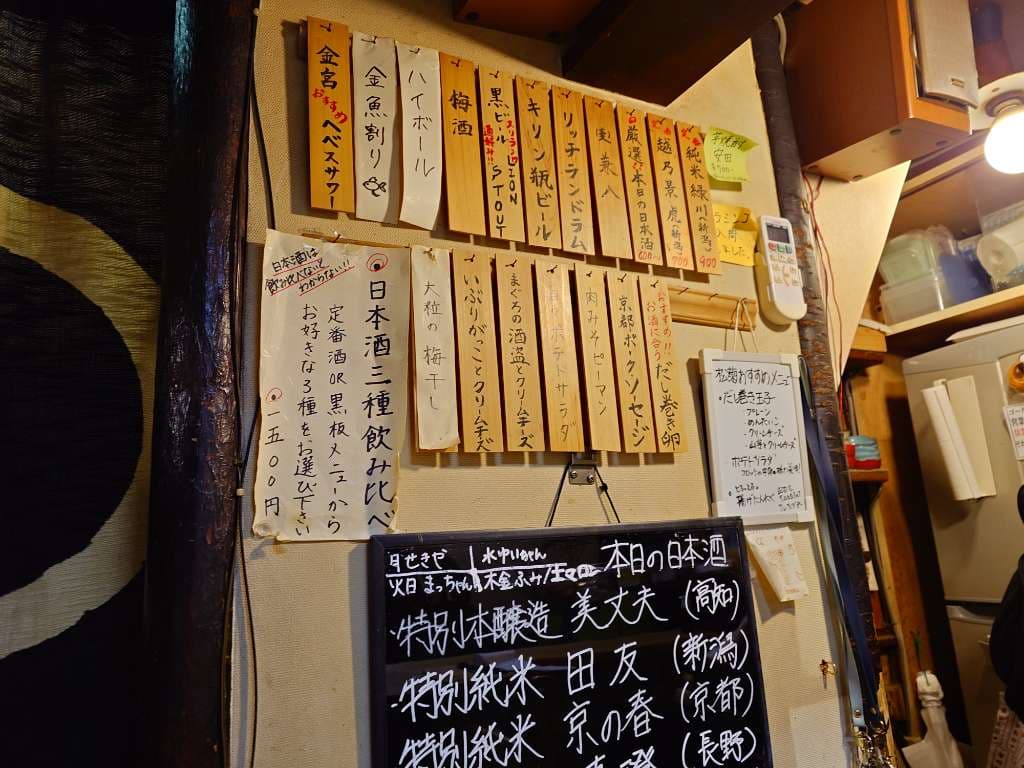 金宮
おすすめ
ヘベスサワー
金魚割り
ハイボール
梅酒
黒ビール
スリランカLION
STOUT
キリン瓶ビール
リッチランドラム
麦 兼八
厳選!本日の日本酒
600〜
越乃景虎(新潟)
700
純米 緑川(新潟)
900
安田
¥700-
入荷
しました。
日本酒は
飲み比べないと
わからない!!
◉日本酒三種飲み比べ
定番酒OR黒板メニューから
お好きな3種をお選び下さい
◉一五〇〇円
大粒の梅干し
いぶりがっことクリームチーズ
まぐろの酒盗とクリームチーズ
ポテトサラダ
肉みそピーマン
京都ポークソーセージ
おすすめ!!
お酒に合う
だし巻き卵
おすすめメニュー
・だし巻き玉子
プレーン
めんたいこ
クリームチーズ
ポテトサラダ
月せきや
水ゆいちゃん
火日まっちゃん
木金ふみ
本日の日本酒
・特別本醸造 美丈夫(高知)
・特別純米 田友(新潟)
・特別純米 京の春(京都)
(長野)